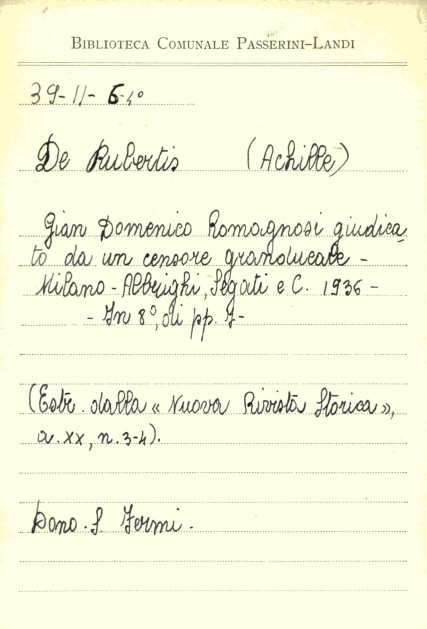 BIBLIOTECA COMUNALE PASSERINI-LANDI
39-11-6-4º
De Rubertis (Achille)
Gian Domenico Romagnosi giudica
to da un censore granducale -
Milano - Albrighi, Segati e C. 1936 -
- In 8º, di pp. 7-
(Estr. dalla « Nuova Rivista Storica »,
a. XX, n. 3-4).
Dono S. Fermi.